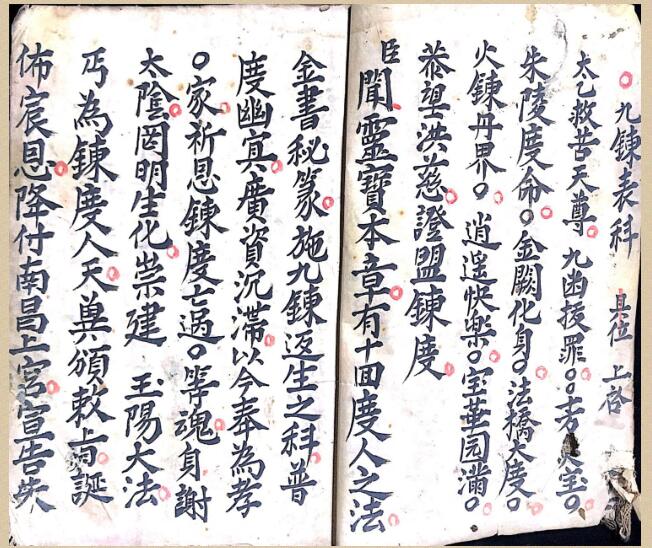 九鍊表科 具位 上啓
太乙救苦天尊 九幽拔罪○○宝○
朱陵度命○金闕化身○法橋大度○
火鍊丹界○逍遥快楽○宝華园滿○
恭望洪慈證盟鍊度
臣聞靈寶本章有十囬度人之法
金書秘篆施九鍊返生之科普
度幽冥廣資沉滯以今奉為孝
○家祈恩鍊度亡過○等魂身謝
太陰罔明生化崇建 玉陽大法
丐為鍊度人天冀頒敕旨誕
佈宸恩降付南昌上宮宣告失